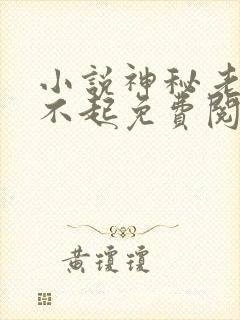 小說神秘老
不起免費閱
黃瓊瓊